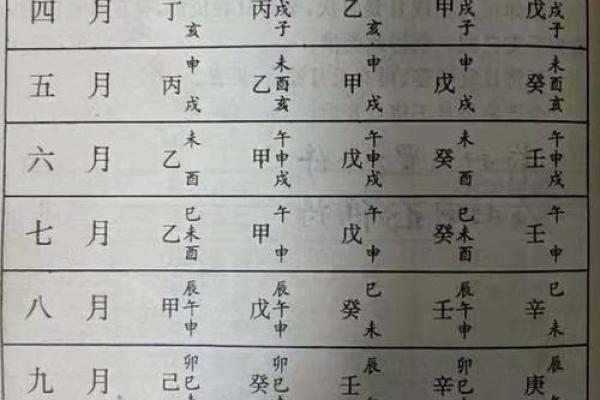 四月 丁亥 丙戌子 乙亥 甲戌子 戊戌子
五月 丙申戌 乙未酉亥 甲申戌 戊申戌 癸未酉亥
六月 乙未酉 甲午申戌 戊午申戌 癸未酉 壬午申戌
七月 乙巳未酉 甲午申 戊午申 癸巳未酉 壬午申
八月 甲辰午申 戊辰午申 癸巳未 壬辰午申 辛巳未
九月 己卯巳未 癸卯巳未 壬辰 辛卯巳 庚辰